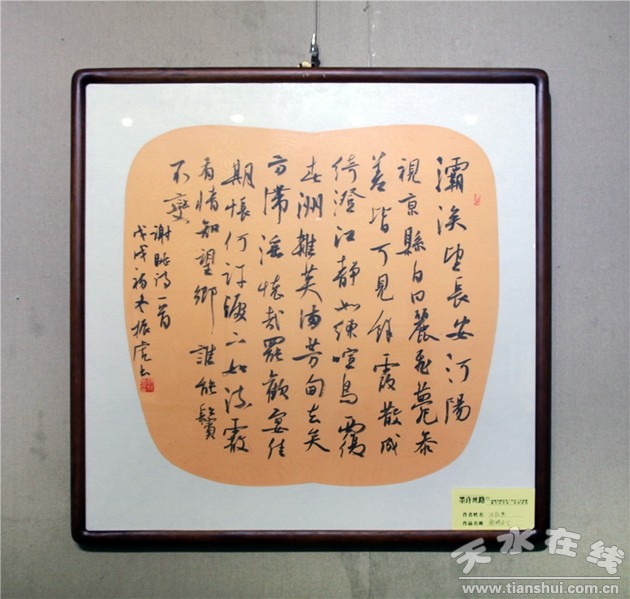 灞涘望長安河陽
視京縣白日麗飛甍參
差皆可見餘霞散成
綺澄江靜如練喧鳥覆
春洲雜英滿芳甸去矣
方滯淫懷哉罷歡宴佳
期悵何許淚下如流霰
有情知望鄉誰能鬒
不變
謝朓詩一首
戊戌初冬振虎书
丝路
作者姓名
作品名称
天水在线
www.tianshui.com.cn